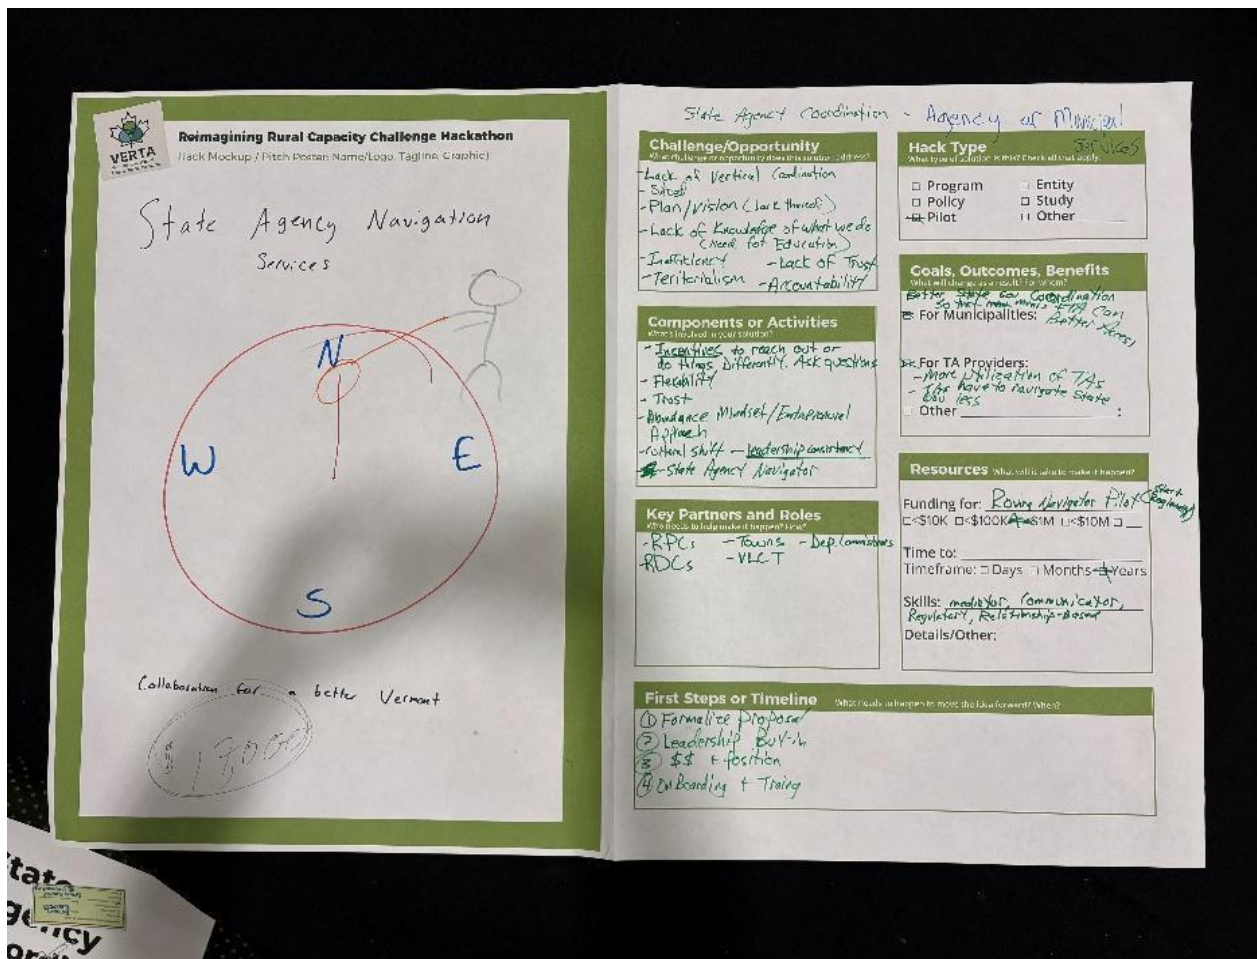 VERTA
Reimagining Rural Capacity Challenge Hackathon
Hack Mockup / Pitch Poster: Name/Logo, Tagline, Graphic)
State Agency Navigation
Services
N
W
E
S
Collaboration for a better Vermont
State Agency Coordination - Agency or Municipal
Services
Challenge/Opportunity
What challenge or opportunity does this solution address?
- Lack of Vertical Cordination
- Plan/Vision (lack thereof)
- Lack of Knowledge of what we do
(Need for Education)
- Inefficiency - Lack of Trust
- Teritorialism - Accountability
Components or Activities
What's involved in your solution?
- Incentives to reach out or
do things Differently. Ask questions
- Flexability
- Trust
- Abundance Mindset/
- cultural shift - leadership consistency
- State Agency Navigator
Key Partners and Roles
Who needs to help make it happen? How?
- RPCs - Towns - Dep. Commissioners
RDCs - VLCT
Hack Type
What type of solution is this? Check all that apply.
□ Program □ Entity
□ Policy □ Study
Pilot □ Other
Goals, Outcomes, Benefits
What will change as a result? For whom?
Better State Gov Coordination
So that munis + TA Can
For Municipalities: Better Access
For TA Providers:
- More Utilization of TAs
- TAs have to navigate State
Gov less
Other :
Resources What will it take to make it happen?
Funding for: Roving Navigator Pilot (Start
□<$10K □<$100K <$1M □<$10M □
Time to:
Timeframe: □ Days □ Months Years
Skills: mediator, Communicator,
Regulatory, Relationship-Based
Details/Other:
First Steps or Timeline What needs to happen to move the idea forward? When?
① Formalize Proposal
② Leadership Buy-in
③ $$ + Position
④ OnBoarding + Traing